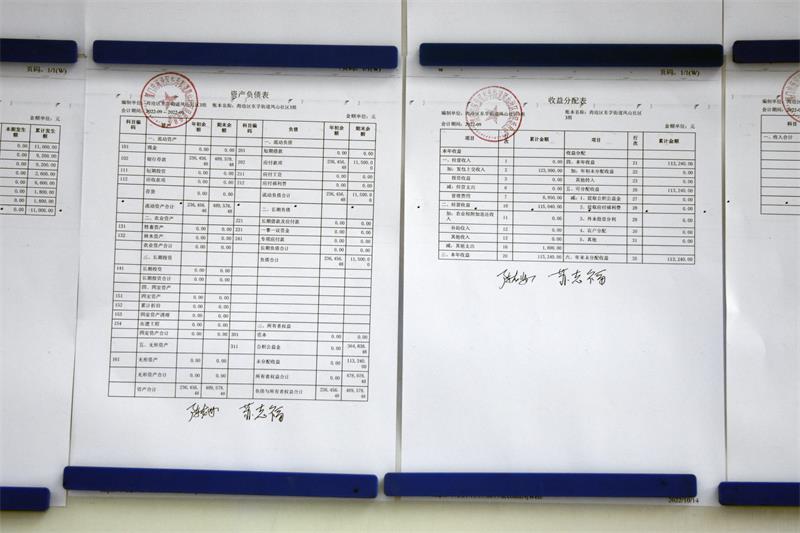 页码：1/1(W)
金额单位：元
本期发生额 累计发生额
0.00 11,000.00
0.00 9,200.00
0.00 9,200.00
0.00 2,600.00
0.00 6,600.00
0.00 0.00
0.00 0.00
0.00 -11,000.00
页码：1/1(W)
资产负债表
会计期间：2022-09 2022-09
金额单位：元
科目编码 资产 年初余额 期末余额 科目编码 负债 年初余额 期末余额
一、流动资产 一、流动负债
101 现金 0.00 0.00 201 短期借款 0.00 0.00
102 银行存款 236,456.48 489,578.48 202 应付款项 236,456.48 11,500.00
111 短期投资 0.00 0.00 211 应付工资 0.00 0.00
112 应收款项 0.00 0.00 212 应付福利费 0.00 0.00
存货 0.00 0.00 流动负债合计 236,456.48 11,500.00
流动资产合计 236,456.48 489,578.48 二、长期负债
二、农业资产 221 长期借款及应付款 0.00 0.00
131 牲畜资产 0.00 0.00 231 一事一议资金 0.00 0.00
132 林木资产 0.00 0.00 241 专项应付款 0.00 0.00
农业资产合计 0.00 0.00 长期负债合计 0.00 0.00
三、长期投资 负债合计 236,456.48 11,500.00
141 长期投资 0.00 0.00
长期投资合计 0.00 0.00
四、固定资产
151 固定资产 0.00 0.00
152 累计折旧 0.00 0.00
153 固定资产清理 0.00 0.00
154 在建工程 0.00 0.00 三、所有者权益
固定资产合计 0.00 0.00 301 资本 0.00 0.00
五、无形资产 311 公积公益金 0.00 364,838.48
161 无形资产 0.00 0.00 未分配收益 0.00 113,240.00
无形资产合计 0.00 0.00 所有者权益合计 0.00 478,078.48
资产合计 236,456.48 489,578.48 负债与所有者权益合计 236,456.48 489,578.48
苏志福
收益分配表
账本名称：海沧区东孚街道凤山社区3组
会计期间：2022-09
金额单位：元
项目 行次 累计金额 项目 行次 累计金额
本年收益 收益分配
一、经营收入 1 0.00 四、本年收益 21 113,240.00
加：发包上交收入 2 123,990.00 加：年初未分配收益 22 0.00
投资收益 3 0.00 其他转入 23 0.00
减：经营支出 6 0.00 五、可分配收益 26 113,240.00
管理费用 7 8,950.00 减：1、提取公积公益金 27 0.00
二、经营收益 10 115,040.00 2、提取应付福利费 28 0.00
11 0.00 3、外来投资分利 29 0.00
补助收入 12 0.00 4、农户分配 30 0.00
其他收入 13 0.00 5、其他 31 0.00
减：其他支出 16 1,800.00
三、本年收益 20 113,240.00 六、年末未分配收益 35 113,240.00
苏志福
2022/10/14
一、收入合计